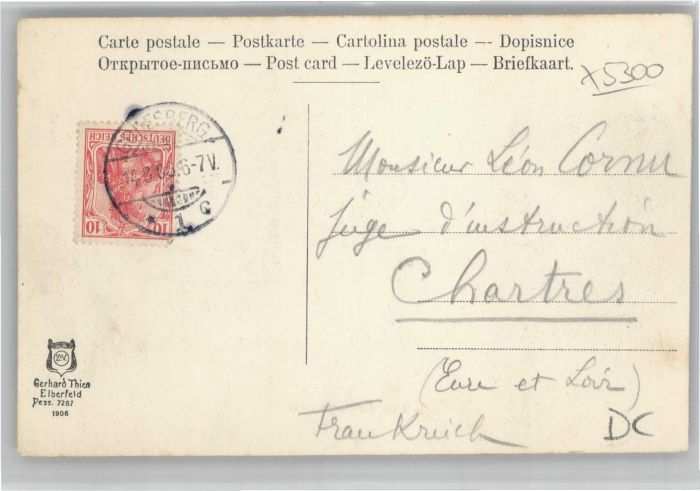 Carte postale — Postkarte — Cartolina postale — Dopisnice
Открытое-письмо — Post card — Levelezö-Lap — Briefkaart.
x5300
DEUTSCHES REICH
10 10
6-7V.
* 1 c
Monsieur Léon Cornu
Juge d'instruction
Chartres
(Eure et Loir)
Frankreich
DC
Gerhard Thien
Elberfeld
Dess. 7287
1906